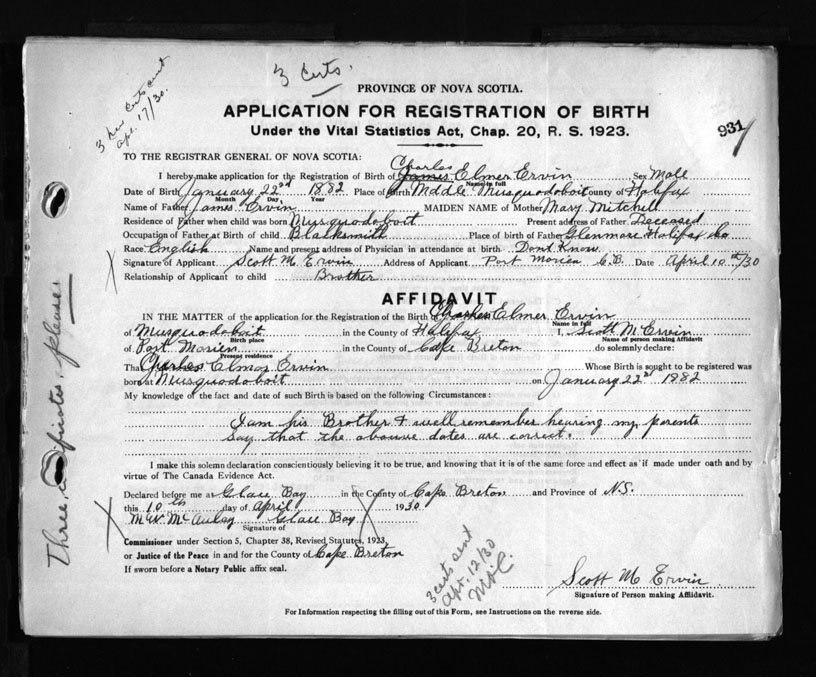 3 Certs.
3 certs sent
apr. 17/30.
PROVINCE OF NOVA SCOTIA.
APPLICATION FOR REGISTRATION OF BIRTH
Under the Vital Statistics Act, Chap. 20, R. S. 1923.
931
TO THE REGISTRAR GENERAL OF NOVA SCOTIA:
Charles
I hereby make application for the Registration of Birth of James Elmer Ervin Sex Male
Name in full
Date of Birth January 22nd 1882 Place of Birth Mddle Musquodoboit County of Halifax
Month Day Year
Name of Father James Ervin MAIDEN NAME of Mother Mary Mitchell
Residence of Father when child was born Musquodoboit Present address of Father Deceased
Occupation of Father at Birth of child Blacksmith Place of birth of Father Glenmore Halifax Co
Race English Name and present address of Physician in attendance at birth Dont Know
Signature of Applicant Scott M Ervin Address of Applicant Port Morien C.B. Date April 10th/30
Relationship of Applicant to child Brother
AFFIDAVIT
IN THE MATTER of the application for the Registration of the Birth of Charles Elmer Ervin
Name in full
of Musquodoboit in the County of Halifax I, Scott M Ervin
Birth place Name of person making Affidavit
of Port Morien in the County of Cape Breton do solemnly declare:
Present residence
That Charles Elmer Ervin Whose Birth is sought to be registered was
born at Musquodoboit on January 22nd 1882
My knowledge of the fact and date of such Birth is based on the following Circumstances:
I am his Brother & well remember hearing my parents
say that the abouve dates are correct.
I make this solemn declaration conscientiously believing it to be true, and knowing that it is of the same force and effect as if made under oath and by
virtue of The Canada Evidence Act.
Declared before me at Glace Bay in the County of Cape Breton and Province of N.S.
this 10th day of April 1930
McAulay Glace Bay
Signature of
Commissioner under Section 5, Chapter 38, Revised Statutes, 1923,
or Justice of the Peace in and for the County of Cape Breton
If sworn before a Notary Public affix seal.
3 certs sent
Apr. 12/30
Scott M Ervin
Signature of Person making Affidavit.
For Information respecting the filling out of this Form, see Instructions on the reverse side.
Three please